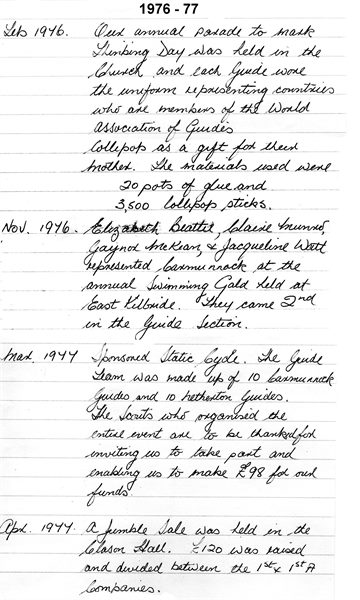 1976 - 77
Feb 1976. Our annual parade to mark
Thinking Day was held in the
Church and each Guide wore
the uniform representing countries
who are members of the World
Association of Guides
Lollipops as a gift for their
Mother. The materials used were
20 pots of glue and
3,500 lollipop sticks.
Nov. 1976. Elizabeth Beattie, Claire Munro,
Gaynor McKean, & Jacqueline Watt
represented Carmunnock at the
annual Swimming Gala held at
East Kilbride. They came 2nd
in the Guide Section.
Mar. 1977 Sponsored Static Cycle. The Guide
Team was made up of 10 Carmunnock
Guides and 10 Netherton Guides.
The Scouts who organised the
entire event are to be thanked for
inviting us to take part and
enabling us to make £98 for our
funds.
Apr. 1977. A Jumble Sale was held in the
Clason Hall. £120 was raised
and divided between the 1st & 1st A
Companies.